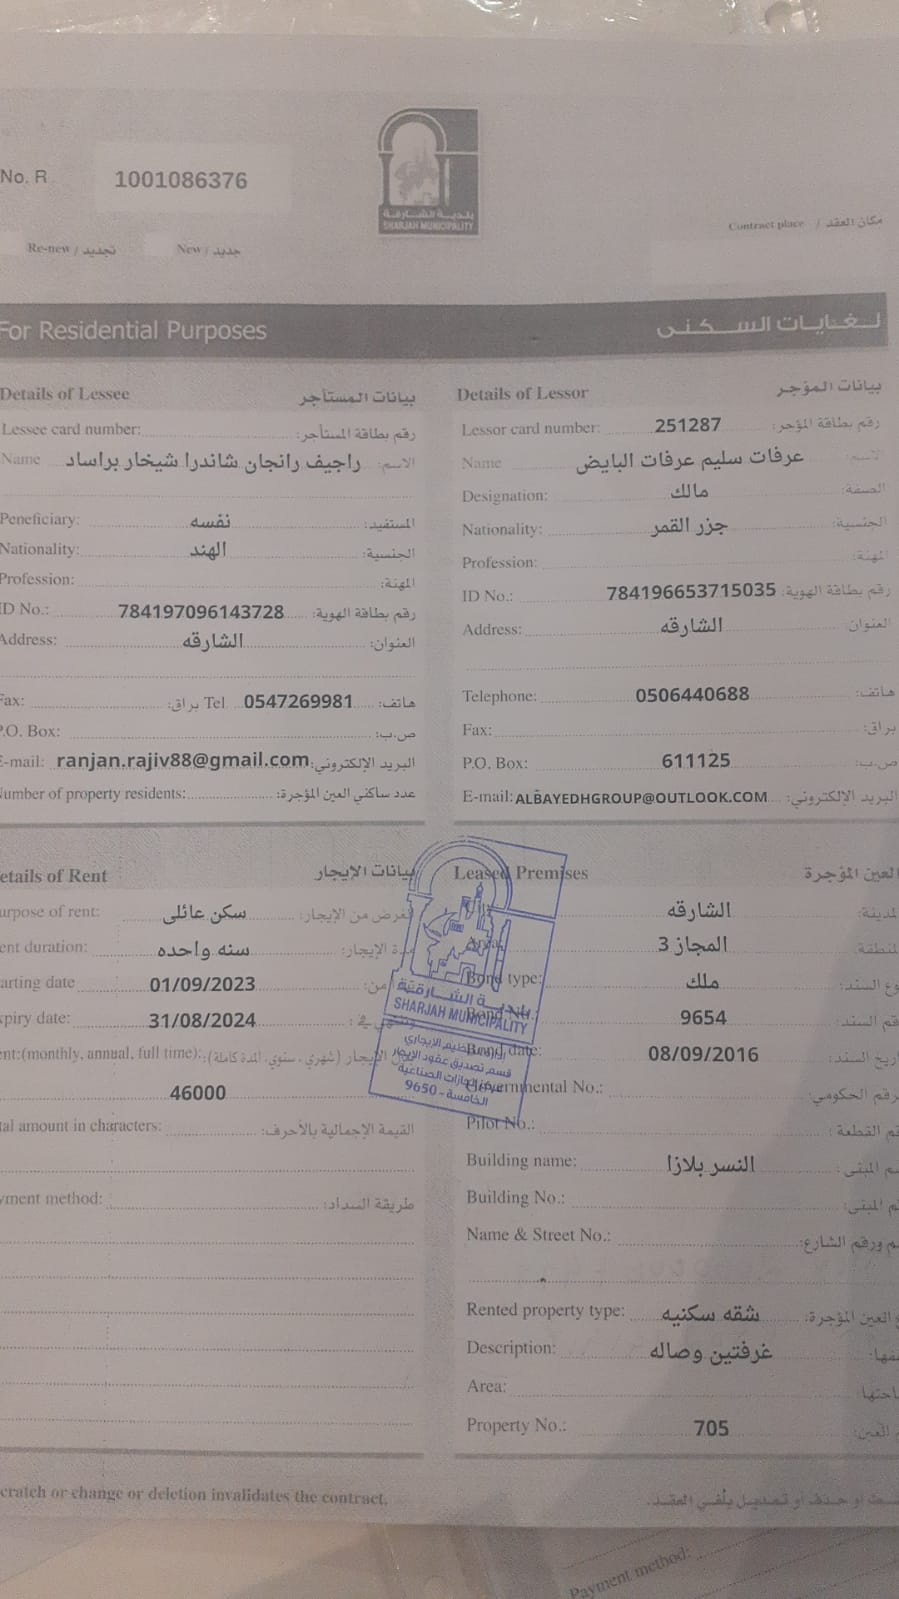 No. R 1001086376
بلدية الشارقة
SHARJAH MUNICIPALITY
Contract place / مكان العقد
Re-new / تجديد New / جديد
For Residential Purposes لغايات السكنى
Details of Lessee بيانات المستأجر
Lessee card number: رقم بطاقة المستأجر:
Name راجيف رانجان شاندرا شيخار براساد الاسم:
Peneficiary: نفسه المستفيد:
Nationality: الهند الجنسية:
Profession: المهنة:
ID No.: 784197096143728 رقم بطاقة الهوية:
Address: الشارقه العنوان:
Fax: براق: Tel 0547269981 هاتف:
P.O. Box: ص.ب:
E-mail: ranjan.rajiv88@gmail.com البريد الإلكتروني:
Number of property residents: عدد ساكني العين المؤجرة:
Details of Lessor بيانات المؤجر
Lessor card number: 251287 رقم بطاقة المؤجر:
Name عرفات سليم عرفات البايض الاسم:
Designation: مالك الصفة:
Nationality: جزر القمر الجنسية:
Profession: المهنة:
ID No.: 784196653715035 رقم بطاقة الهوية:
Address: الشارقه العنوان:
Telephone: 0506440688 هاتف:
Fax: براق:
P.O. Box: 611125 ص.ب:
E-mail: ALBAYEDHGROUP@OUTLOOK.COM البريد الإلكتروني:
etails of Rent بيانات الإيجار
urpose of rent: سكن عائلى الغرض من الإيجار:
ent duration: سنه واحده مدة الإيجار:
arting date 01/09/2023 من:
piry date: 31/08/2024 وتنتهي في:
ent:(monthly, annual, full time): الإيجار (شهري، سنوي، المدة كاملة):
46000
tal amount in characters: القيمة الإجمالية بالأحرف:
yment method: طريقة السداد:
بلدية الشارقة
SHARJAH MUNICIPALITY
قسم تصديق عقود الإيجار
الصناعية
الخامسة - 9650
Leased Premises العين المؤجرة
الشارقه
Area: المجاز 3
Bond type: ملك وع السند:
Bond No.: 9654 قم السند:
Bond date: 08/09/2016 اريخ السند:
Governmental No.: لرقم الحكومي:
Pilot No.: قم القطعة:
Building name: النسر بلازا م المبنى:
Building No.: م المبنى:
Name & Street No.: م ورقم الشارع:
Rented property type: شقه سكنيه العين المؤجرة:
Description: غرفتين وصاله
Area:
Property No.: 705 العين:
cratch or change or deletion invalidates the contract. أو حذف أو تعديل يلغي العقد.
Payment method: